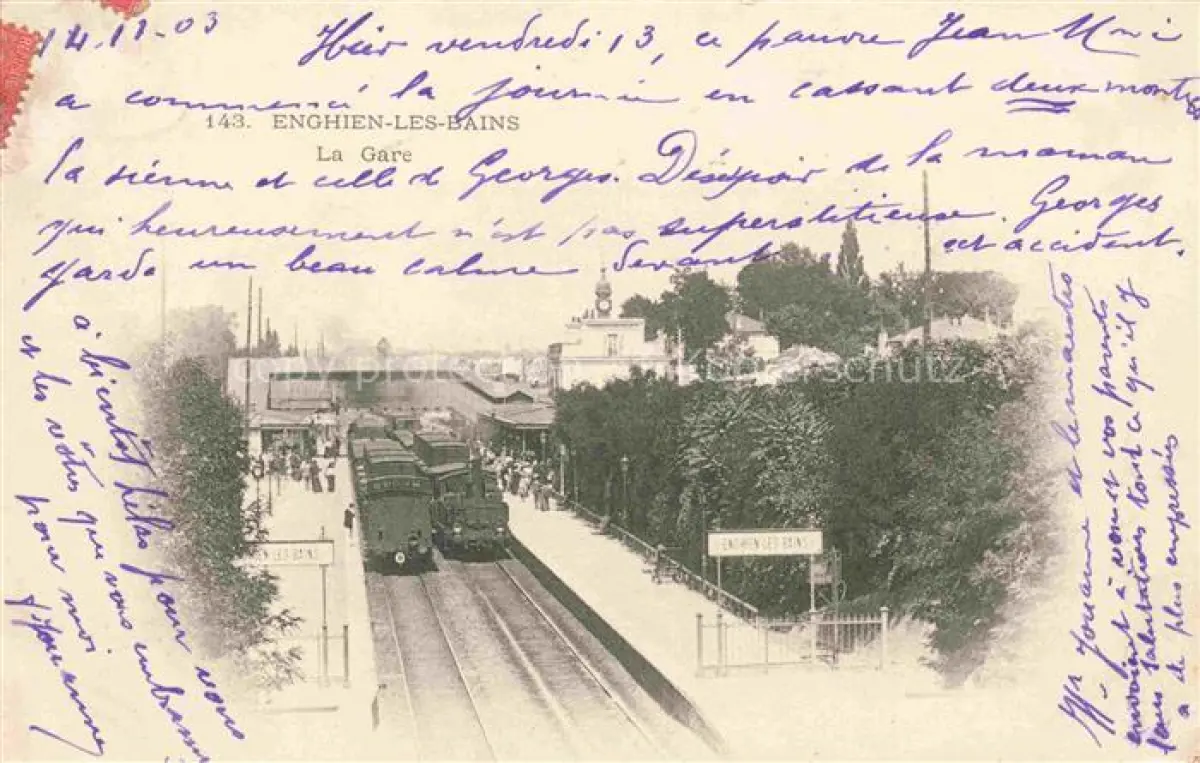 14.11.03
Hier vendredi 13, ce pauvre Jean
a commencé la journée en cassant deux montres
143. ENGHIEN-LES-BAINS
La Gare
la sienne et celle de Georges. Désespoir de la maman
qui heureusement n'est pas superstitieuse. Georges
garde un beau calme devant cet accident.
à bientôt, hélas pour vous
et les vôtres que vous embrassez
pour moi
Mr Jouanne et le
envoient à vous et vos parents
tous salutations tout ce qu'il y
a de plus empressés
ENGHIEN-LES-BAINS
HIEN-LES-BAINS
copyright protection Kopierschutz